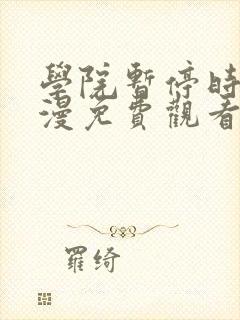 學院暫停時
漫免費觀看
羅綺